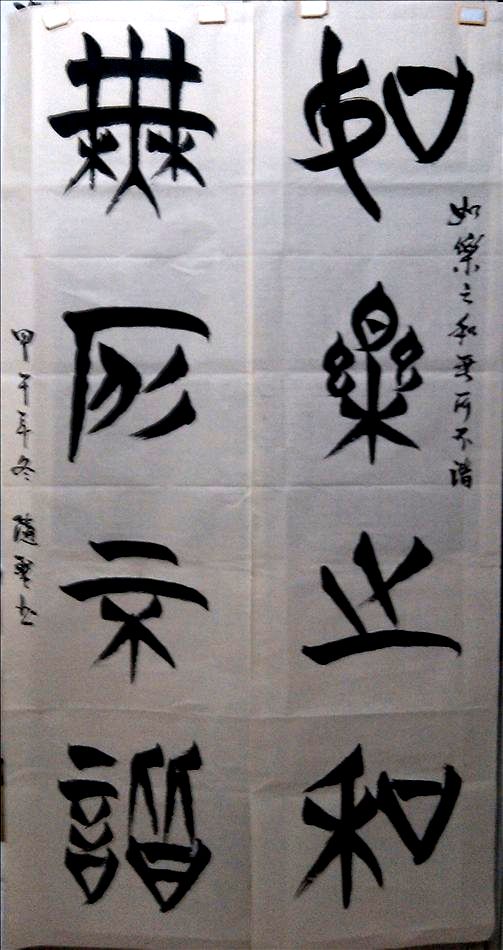 如樂之和
無所不諧
如樂之和無所不諧
甲午年冬